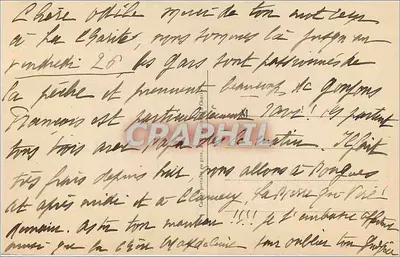 Chère Odile merci de ton mot reçu
à La Charité, nous sommes là jusqu'au
vendredi 26, les gars sont passionnés de
la pêche et prennent beaucoup de goujons
François est particulièrement ravi! ils partent
tous trois avec Papa dès le matin. Il fait
très frais depuis hier, nous allons à
cet après midi et à Clamecy
demain. as-tu ton manteau!!!! je t'embrasse
ainsi que ta chère sans oublier ton
CPAPHIL